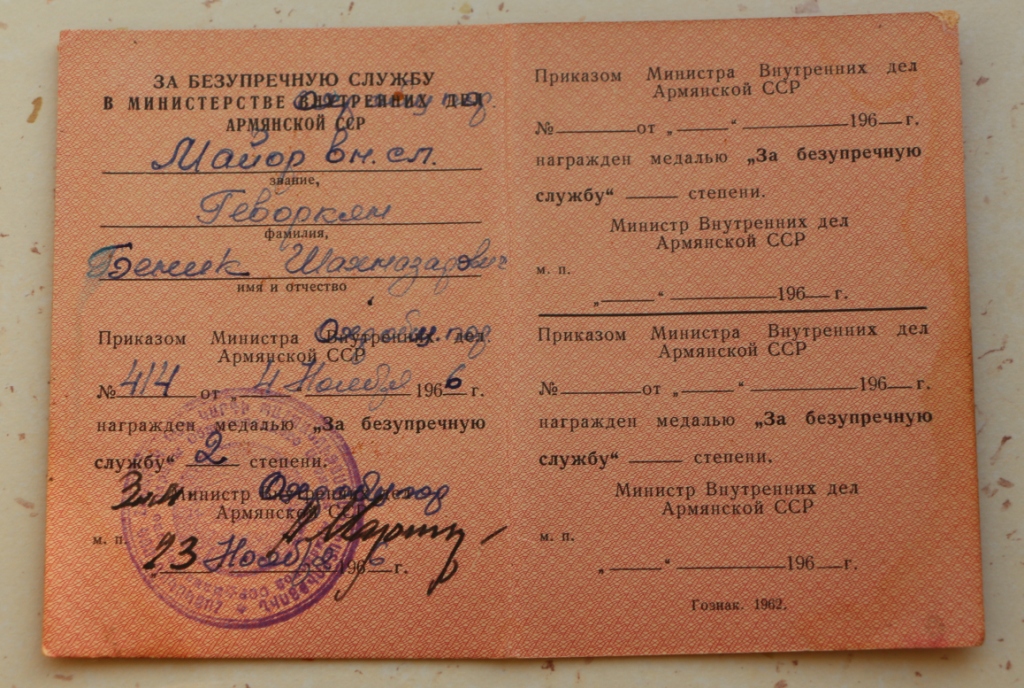 ЗА БЕЗУПРЕЧНУЮ СЛУЖБУ
В МИНИСТЕРСТВЕ ВНУТРЕННИХ ДЕЛ
АРМЯНСКОЙ ССР
Майор вн. сл.
звание,
Геворкян
фамилия,
Беник Шахназарович
имя и отчество
Приказом Министра Внутренних дел
Армянской ССР
№ 414 от „ 4 Ноября 196 6 г.
награжден медалью „За безупречную
службу“ 2 степени.
Зам. Министр Внутренних
Армянской ССР
м. п.
23 Ноября 196 6 г.
Приказом Министра Внутренних дел
Армянской ССР
№ от „ “ 196 г.
награжден медалью „За безупречную
службу“ степени.
Министр Внутренних дел
Армянской ССР
м. п.
„ “ 196 г.
Приказом Министра Внутренних дел
Армянской ССР
№ от „ “ 196 г.
награжден медалью „За безупречную
службу“ степени.
Министр Внутренних дел
Армянской ССР
м. п.
„ “ 196 г.
Гознак. 1962.